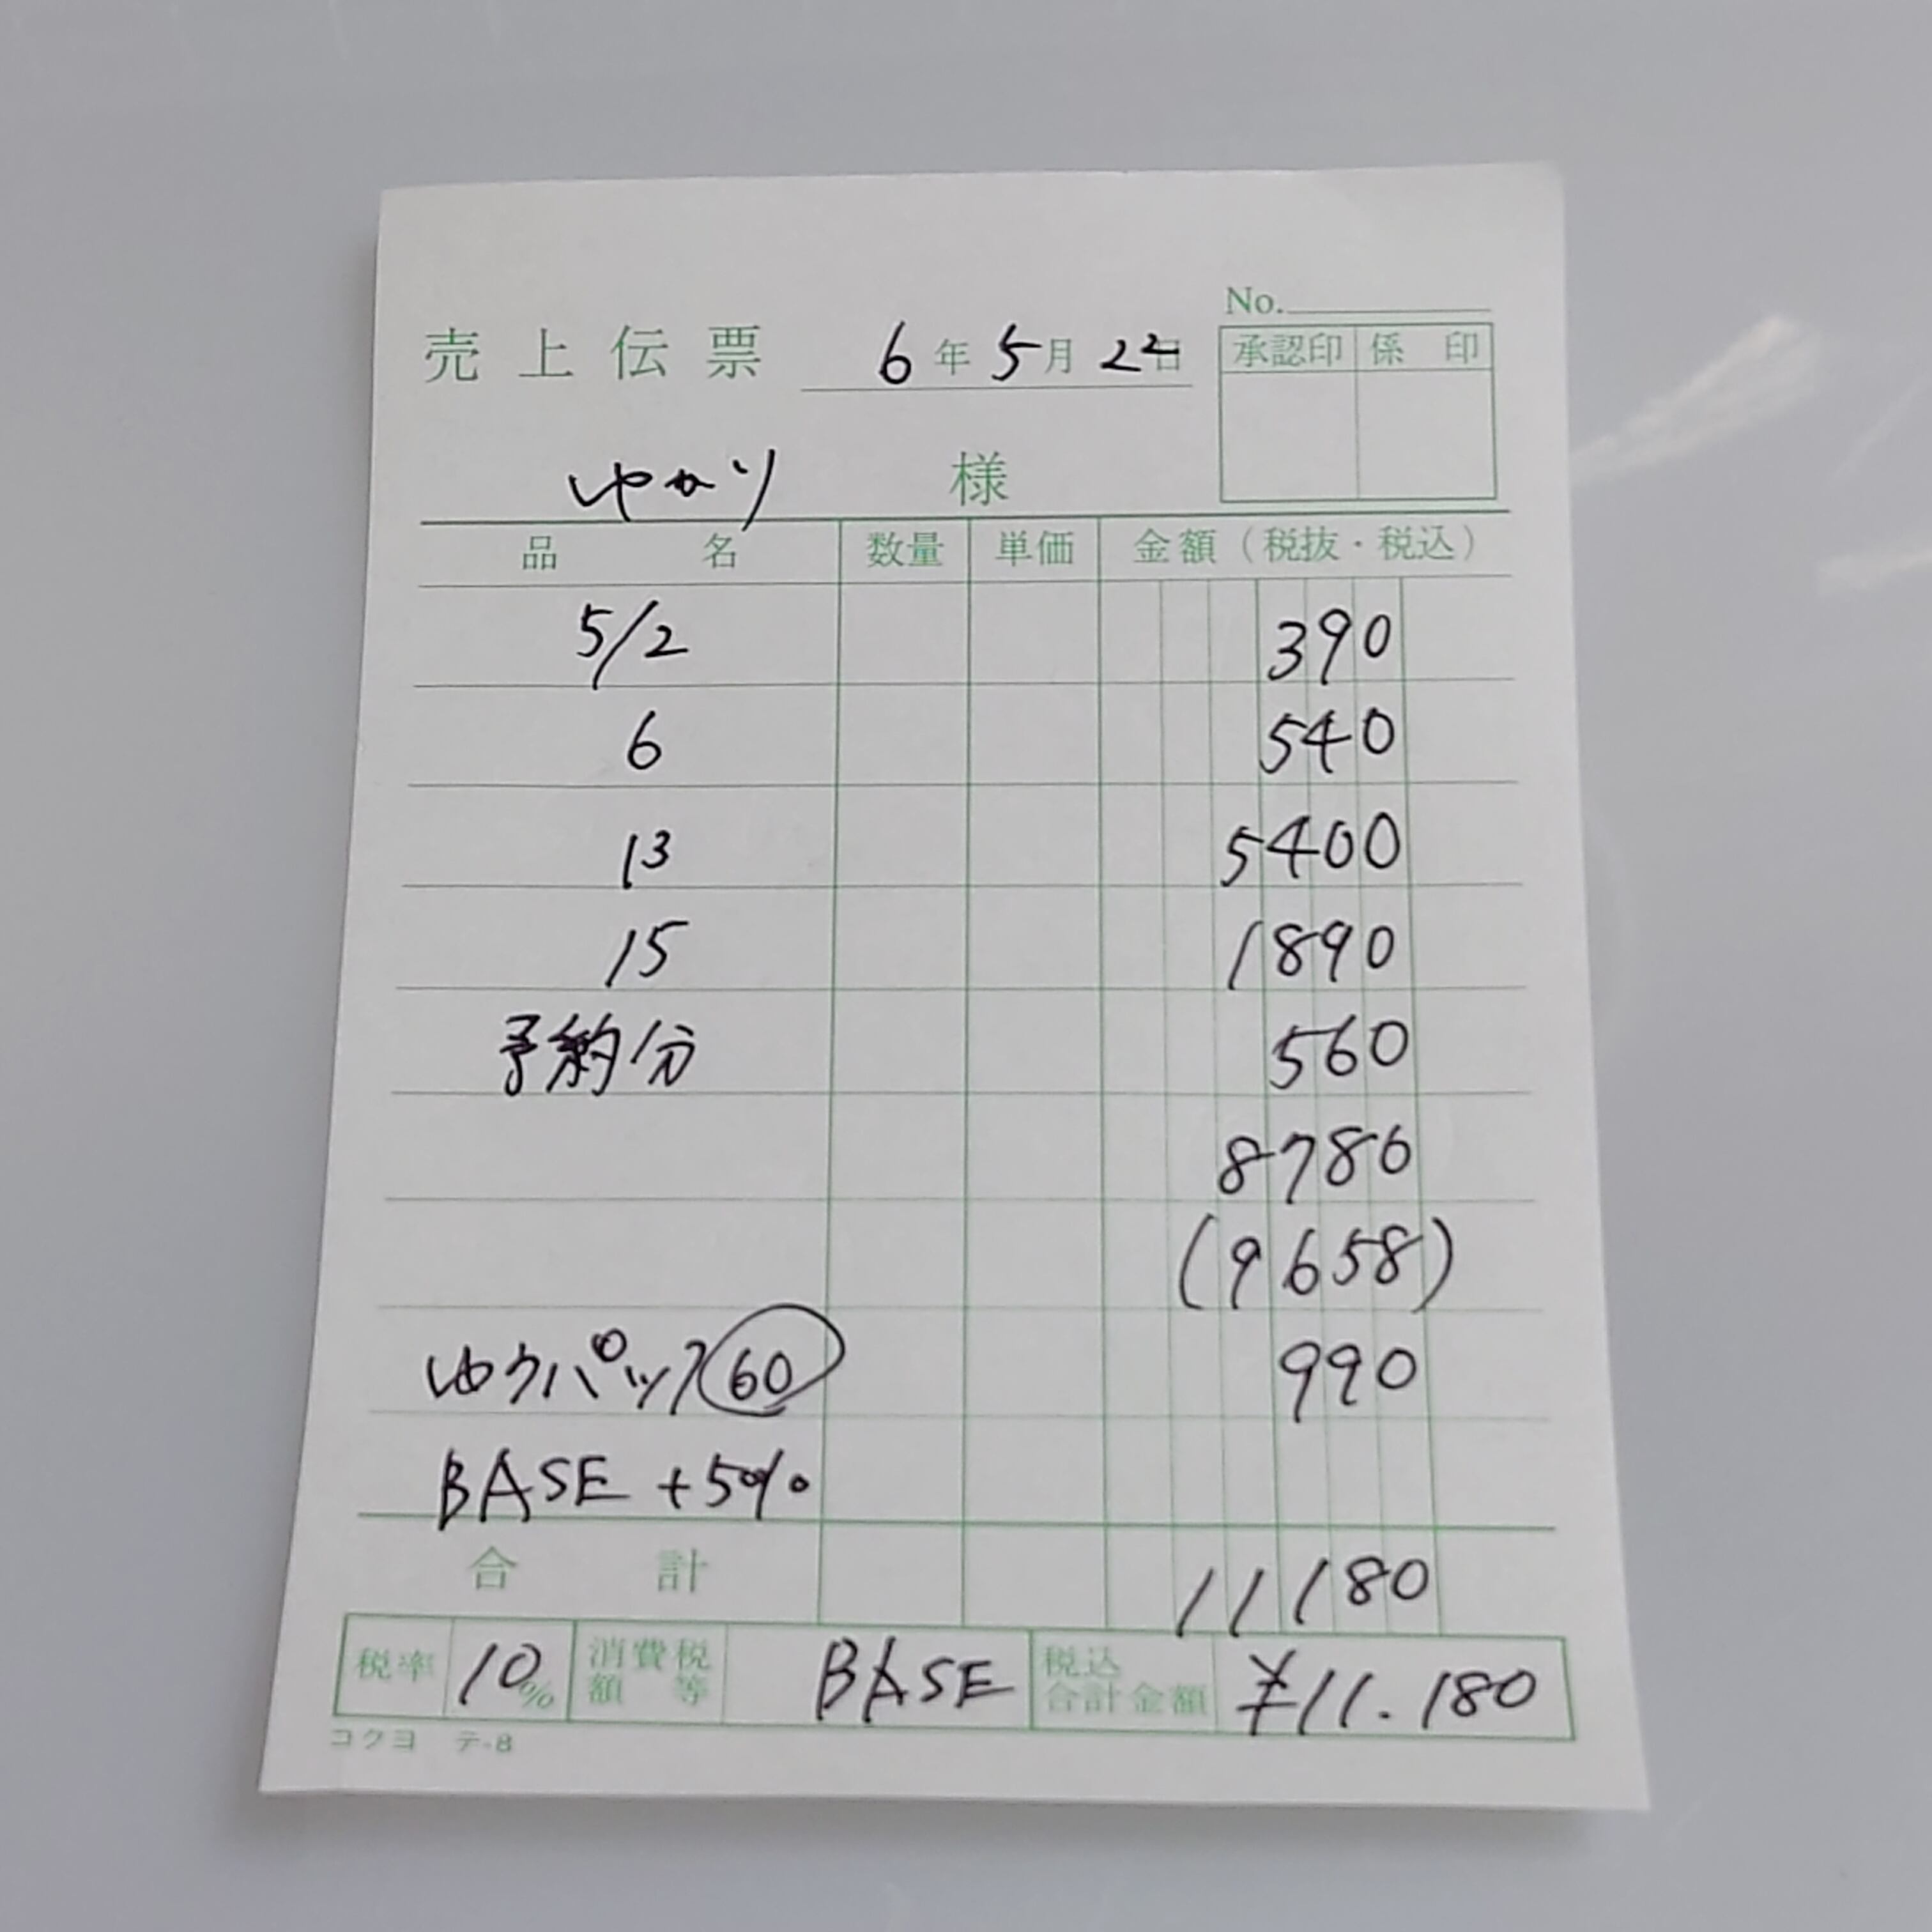 No.
売上伝票 6年5月22日 承認印 係印
ゆかり 様
品名 数量 単価 金額(税抜・税込)
5/2 390
6 540
13 5400
15 1890
予約分 560
8780
(9658)
ゆうパック 60 990
BASE +5%
合計 11180
税率 10% 消費税額等 BASE 税込合計金額 ¥11.180
コクヨ テ-8